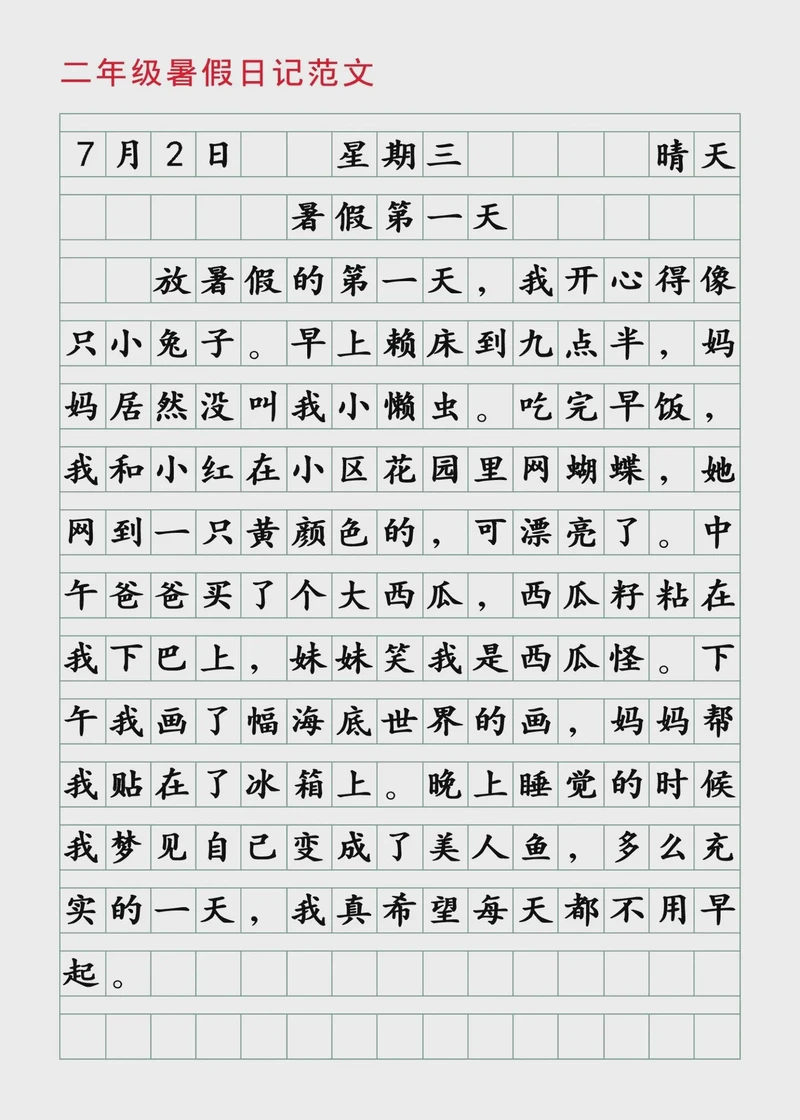 二年级暑假日记范文
7月2日 星期三 晴天
暑假第一天
放暑假的第一天，我开心得像
只小兔子。早上赖床到九点半，妈
妈居然没叫我小懒虫。吃完早饭，
我和小红在小区花园里网蝴蝶，她
网到一只黄颜色的，可漂亮了。中
午爸爸买了个大西瓜，西瓜籽粘在
我下巴上，妹妹笑我是西瓜怪。下
午我画了幅海底世界的画，妈妈帮
我贴在了冰箱上。晚上睡觉的时候
我梦见自己变成了美人鱼，多么充
实的一天，我真希望每天都不用早
起。